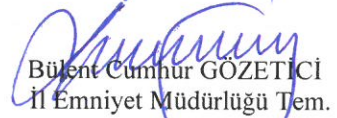 Bülent Cumhur GÖZETİCİ
İl Emniyet Müdürlüğü Tem.